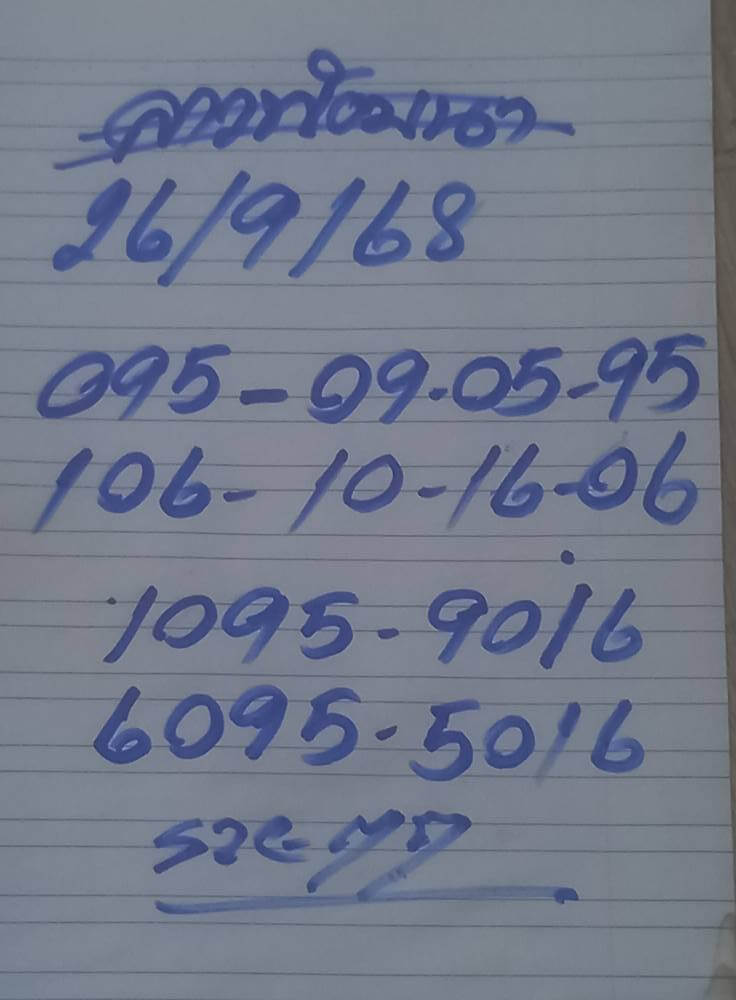 ลาวพัฒนา
26/9/68
095-09-05-95
106-10-16-06
1095-9016
6095-5016